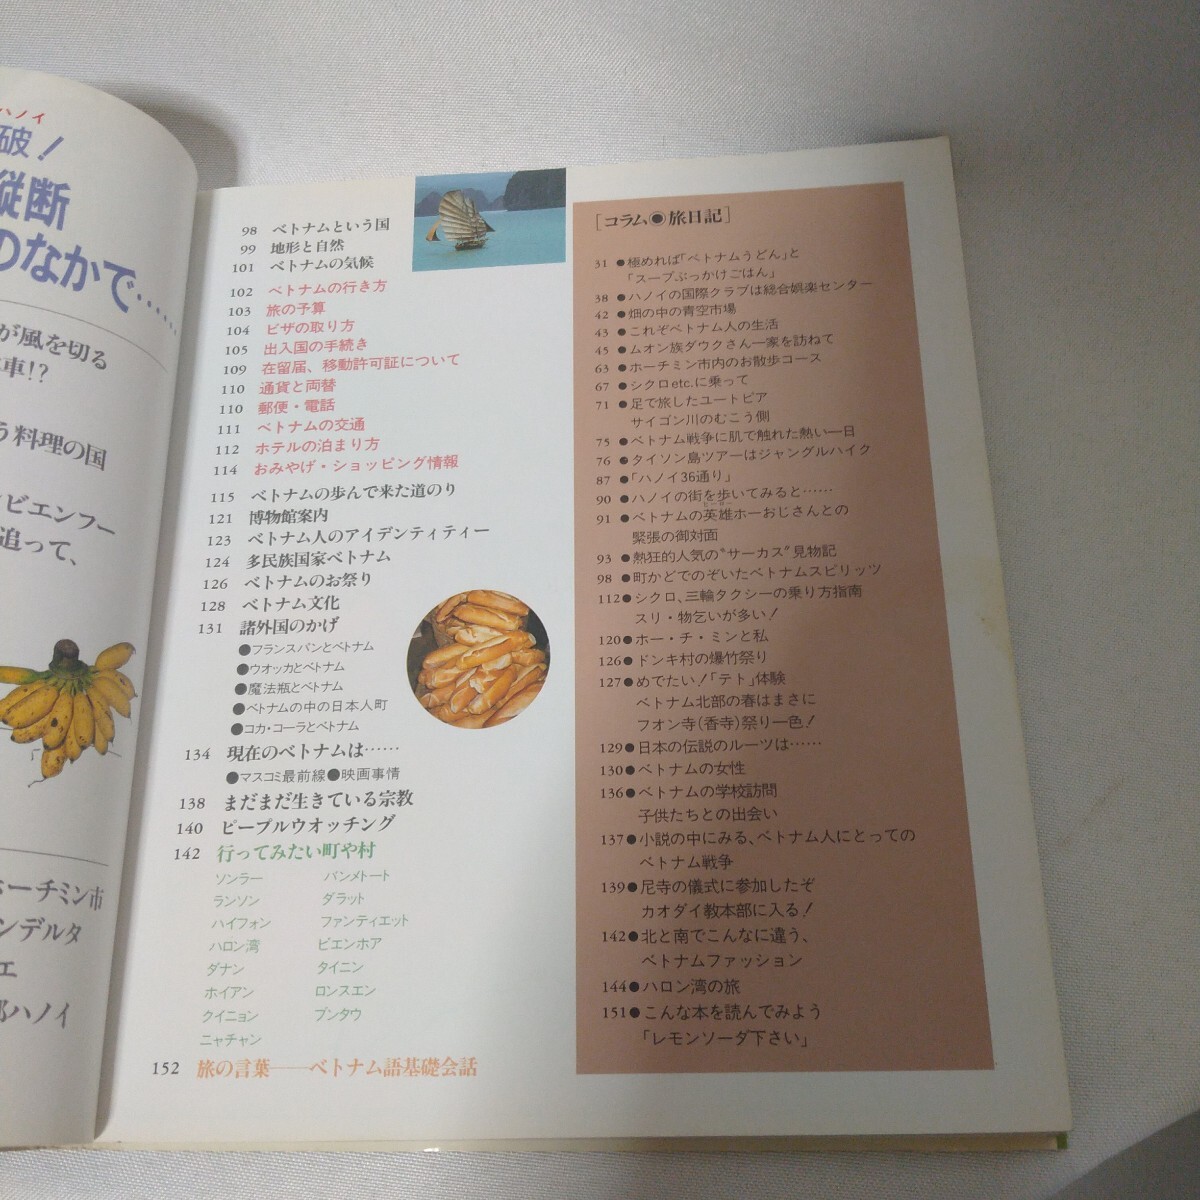 ハノイ
破!
縦断
のなかで……
が風を切る
車!?
う料理の国
ビエンフー
追って、
ホーチミン市
ンデルタ
エ
都ハノイ
98 ベトナムという国
99 地形と自然
101 ベトナムの気候
102 ベトナムの行き方
103 旅の予算
104 ビザの取り方
105 出入国の手続き
109 在留届、移動許可証について
110 通貨と両替
110 郵便・電話
111 ベトナムの交通
112 ホテルの泊まり方
114 おみやげ・ショッピング情報
115 ベトナムの歩んで来た道のり
121 博物館案内
123 ベトナム人のアイデンティティー
124 多民族国家ベトナム
126 ベトナムのお祭り
128 ベトナム文化
131 諸外国のかげ
●フランスパンとベトナム
●ウオッカとベトナム
●魔法瓶とベトナム
●ベトナムの中の日本人町
●コカ・コーラとベトナム
134 現在のベトナムは……
●マスコミ最前線●映画事情
138 まだまだ生きている宗教
140 ピープルウオッチング
142 行ってみたい町や村
ソンラー バンメトート
ランソン ダラット
ハイフォン ファンティエット
ハロン湾 ビエンホア
ダナン タイニン
ホイアン ロンスエン
クイニョン ブンタウ
ニャチャン
152 旅の言葉——ベトナム語基礎会話
[コラム◉旅日記]
31 ●極めれば「ベトナムうどん」と
「スープぶっかけごはん」
38 ●ハノイの国際クラブは総合娯楽センター
42 ●畑の中の青空市場
43 ●これぞベトナム人の生活
45 ●ムオン族ダウクさん一家を訪ねて
63 ●ホーチミン市内のお散歩コース
67 ●シクロetc.に乗って
71 ●足で旅したユートピア
サイゴン川のむこう側
75 ●ベトナム戦争に肌で触れた熱い一日
76 ●タイソン島ツアーはジャングルハイク
87 ●「ハノイ36通り」
90 ●ハノイの街を歩いてみると……
91 ●ベトナムの英雄ホーおじさんとの
緊張の御対面
93 ●熱狂的人気の“サーカス”見物記
98 ●町かどでのぞいたベトナムスピリッツ
112●シクロ、三輪タクシーの乗り方指南
スリ・物乞いが多い!
120●ホー・チ・ミンと私
126●ドンキ村の爆竹祭り
127●めでたい!「テト」体験
ベトナム北部の春はまさに
フオン寺(香寺)祭り一色!
129●日本の伝説のルーツは……
130●ベトナムの女性
136●ベトナムの学校訪問
子供たちとの出会い
137●小説の中にみる、ベトナム人にとっての
ベトナム戦争
139●尼寺の儀式に参加したぞ
カオダイ教本部に入る!
142●北と南でこんなに違う、
ベトナムファッション
144●ハロン湾の旅
151●こんな本を読んでみよう
「レモンソーダ下さい」